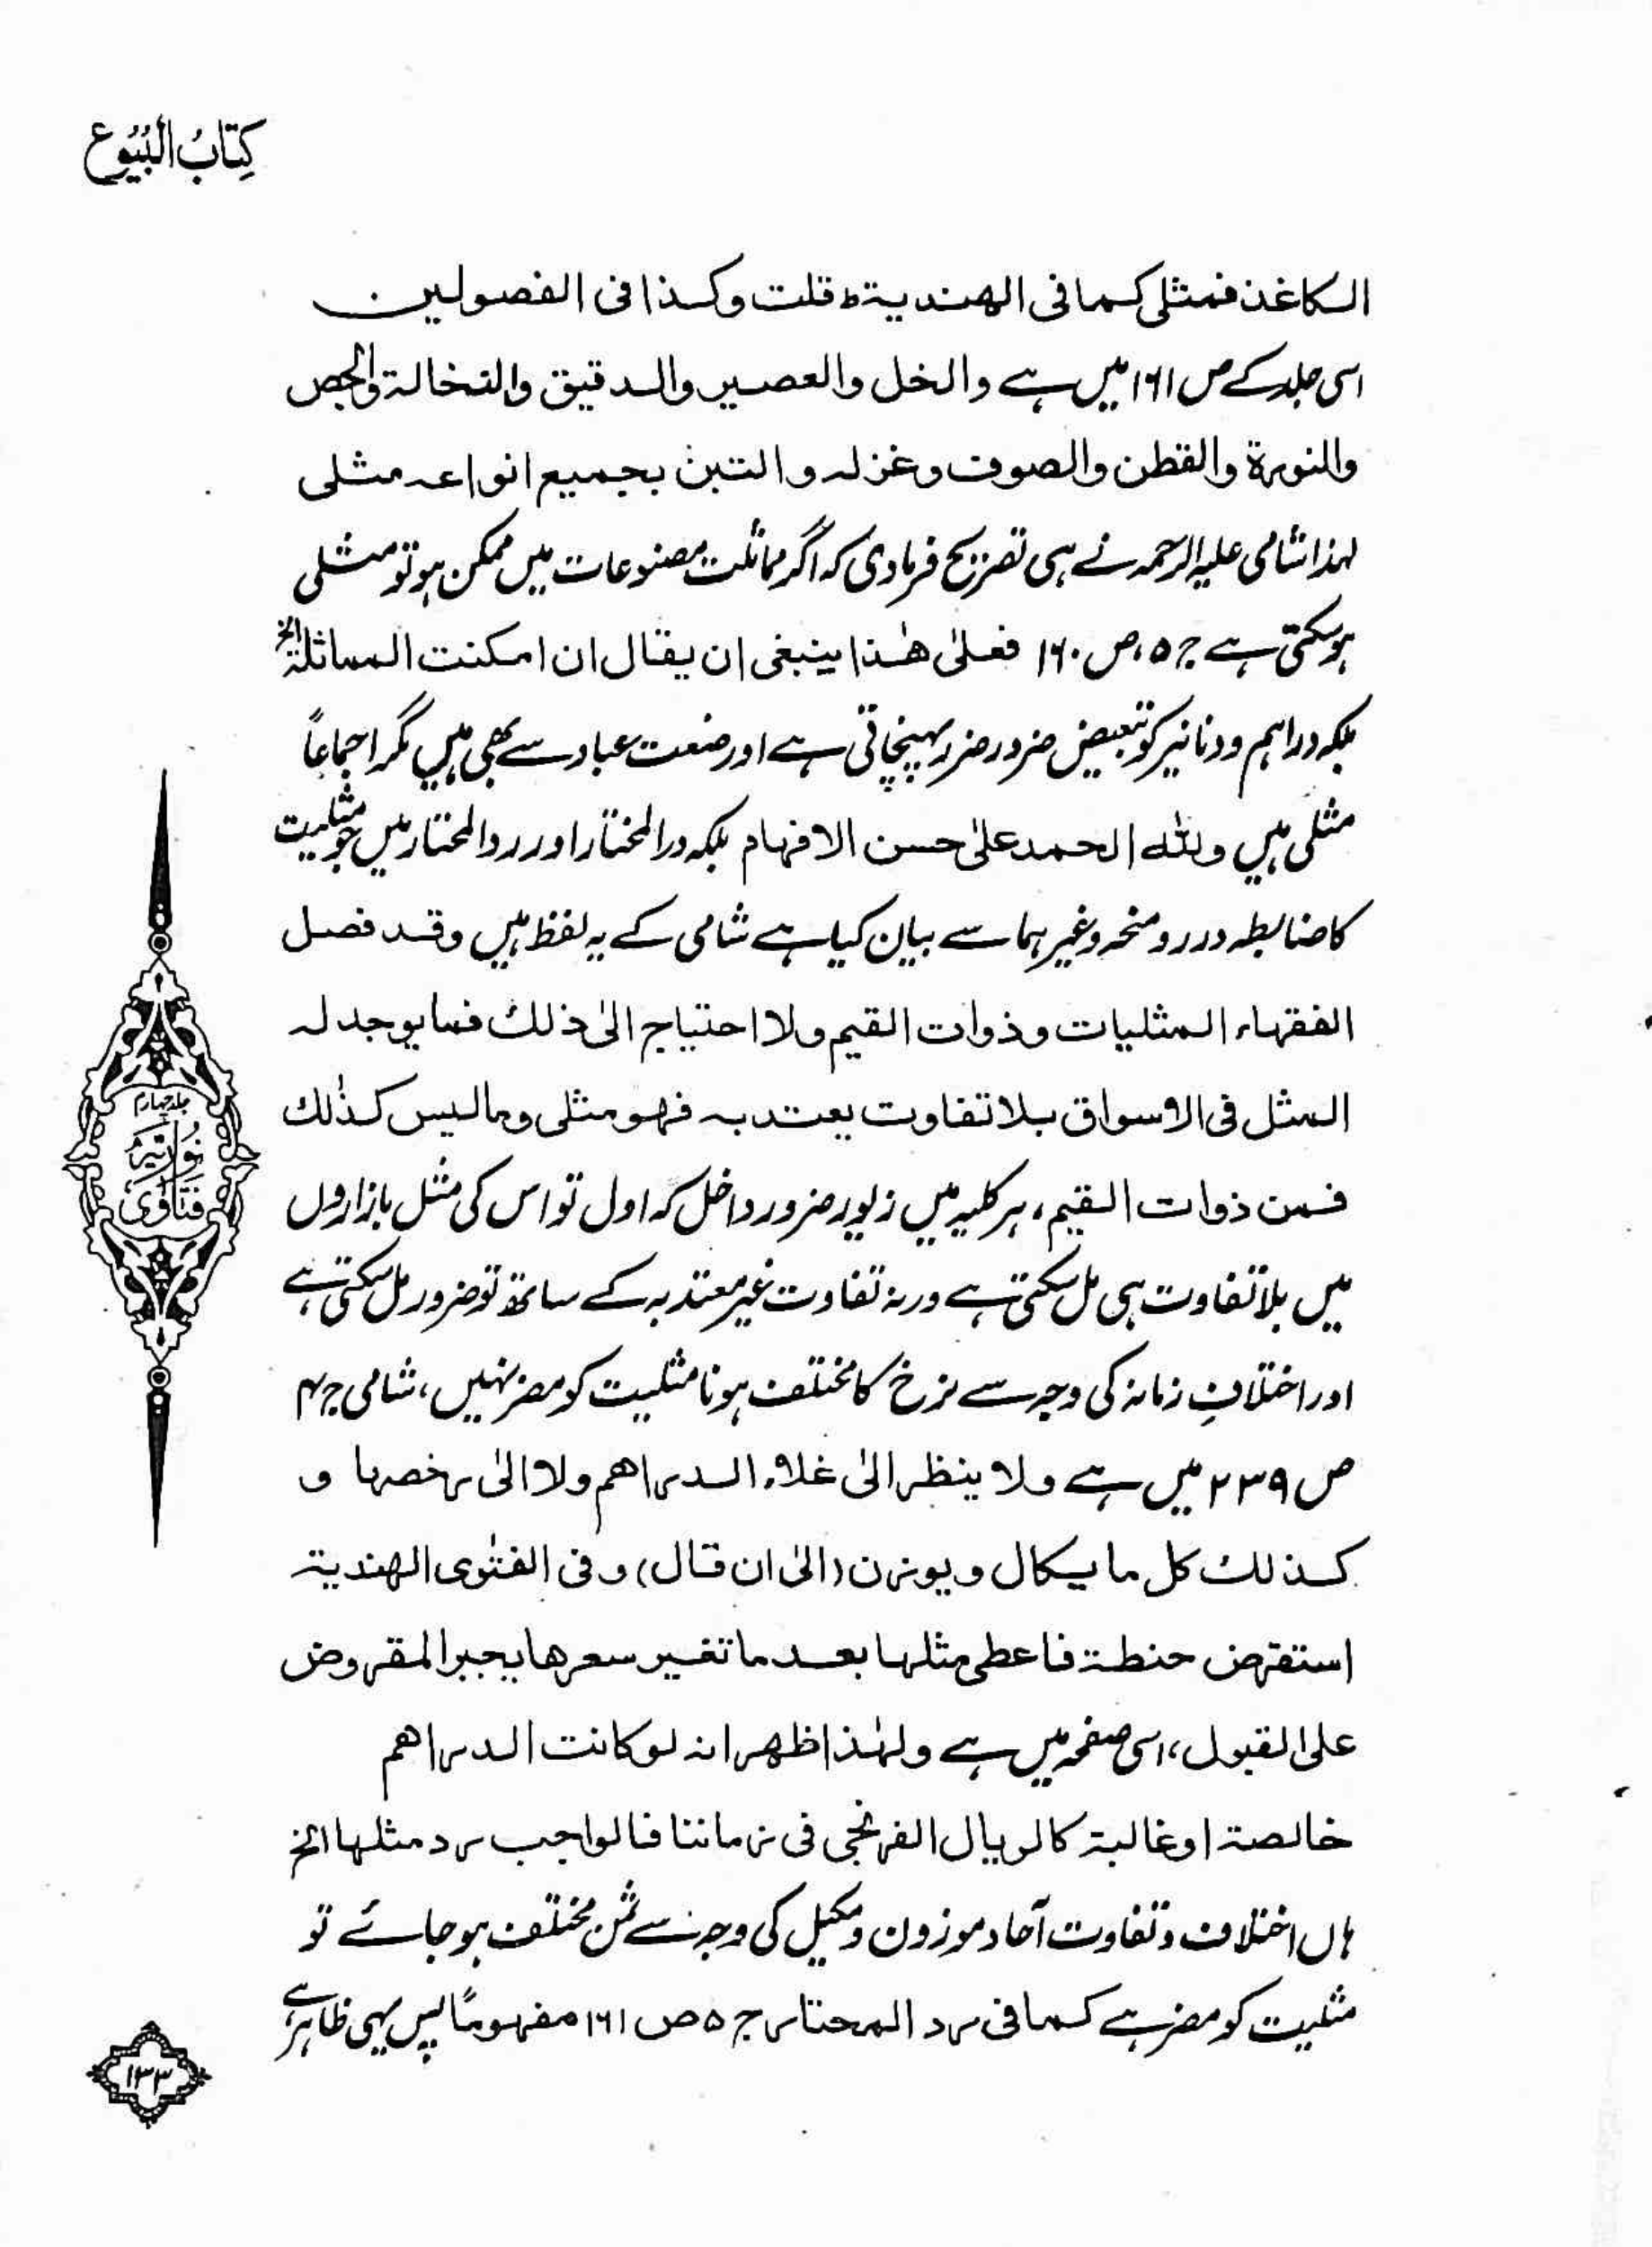 کِتَابُ الْبُيُوع
الکاغذ فمثلی کما فی الهندیة ط قلت وکذا فی الفصولین
اسی جلد کے ص ۱۶۱ میں ہے والخل والعصیر والدقیق والنخالة والجص
والنورة والقطن والصوف وغزله والتبن بجمیع انواعه مثلی
لہذا شامی علیہ الرحمہ نے ہی تصریح فرما دی کہ اگر مماثلت مصنوعات میں ممکن ہو تو مثلی
ہو سکتی ہے ج ۵، ص ۱۶۰ فعلیٰ هٰذا ینبغی ان یقال ان امکنت المماثلة الخ
بلکہ دراہم و دنانیر کو تبعیض ضرور ضرر پہنچاتی ہے اور صنعت عباد سے بھی ہیں مگر اجماعاً
مثلی ہیں وللہ الحمد علیٰ حسن الافهام بلکہ درالمختار اور ردالمحتار میں جو مثلیت
کا ضابطہ درر و منحہ وغیرہما سے بیان کیا ہے شامی کے یہ لفظ ہیں وقد فصل
الفقهاء المثلیات وذوات القیم ولا احتیاج الیٰ ذلك فما یوجد له
المثل فی الاسواق بلا تفاوت یعتد به فهو مثلی وما لیس کذٰلك
فمن ذوات القیم، ہر کلیہ میں زیور ضرور داخل کہ اول تو اس کی مثل بازاروں
میں بلا تفاوت ہی مل سکتی ہے ورنہ تفاوت غیر معتد بہ کے ساتھ تو ضرور مل سکتی ہے
اور اختلافِ زمانہ کی وجہ سے نرخ کا مختلف ہونا مثلیت کو مضر نہیں، شامی ج ۴
ص ۲۳۹ میں ہے ولا ینظر الیٰ غلاء الدراهم ولا الیٰ رخصها و
کذلك کل ما یکال ویوزن (الیٰ ان قال) وفی الفتٰوی الهندیة
استقرض حنطة فاعطی مثلها بعد ما تغیر سعرها یجبر المقروض
علی القبول، اسی صفحہ میں ہے ولہٰذا اظهر انه لو کانت الدراهم
خالصة او غالبة کالریال الفرنجی فی زماننا فالواجب رد مثلها الخ
ہاں اختلاف و تفاوت آحاد موزون و مکیل کی وجہ سے ثمن مختلف ہو جائے تو
مثلیت کو مضر ہے کما فی رد المحتار ج ۵ ص ۱۶۱ مفهومًا پس یہی ظاہر ہے
جلد چہارم
نُورِیَّہ
فَتَاوٰی
۱۳۳